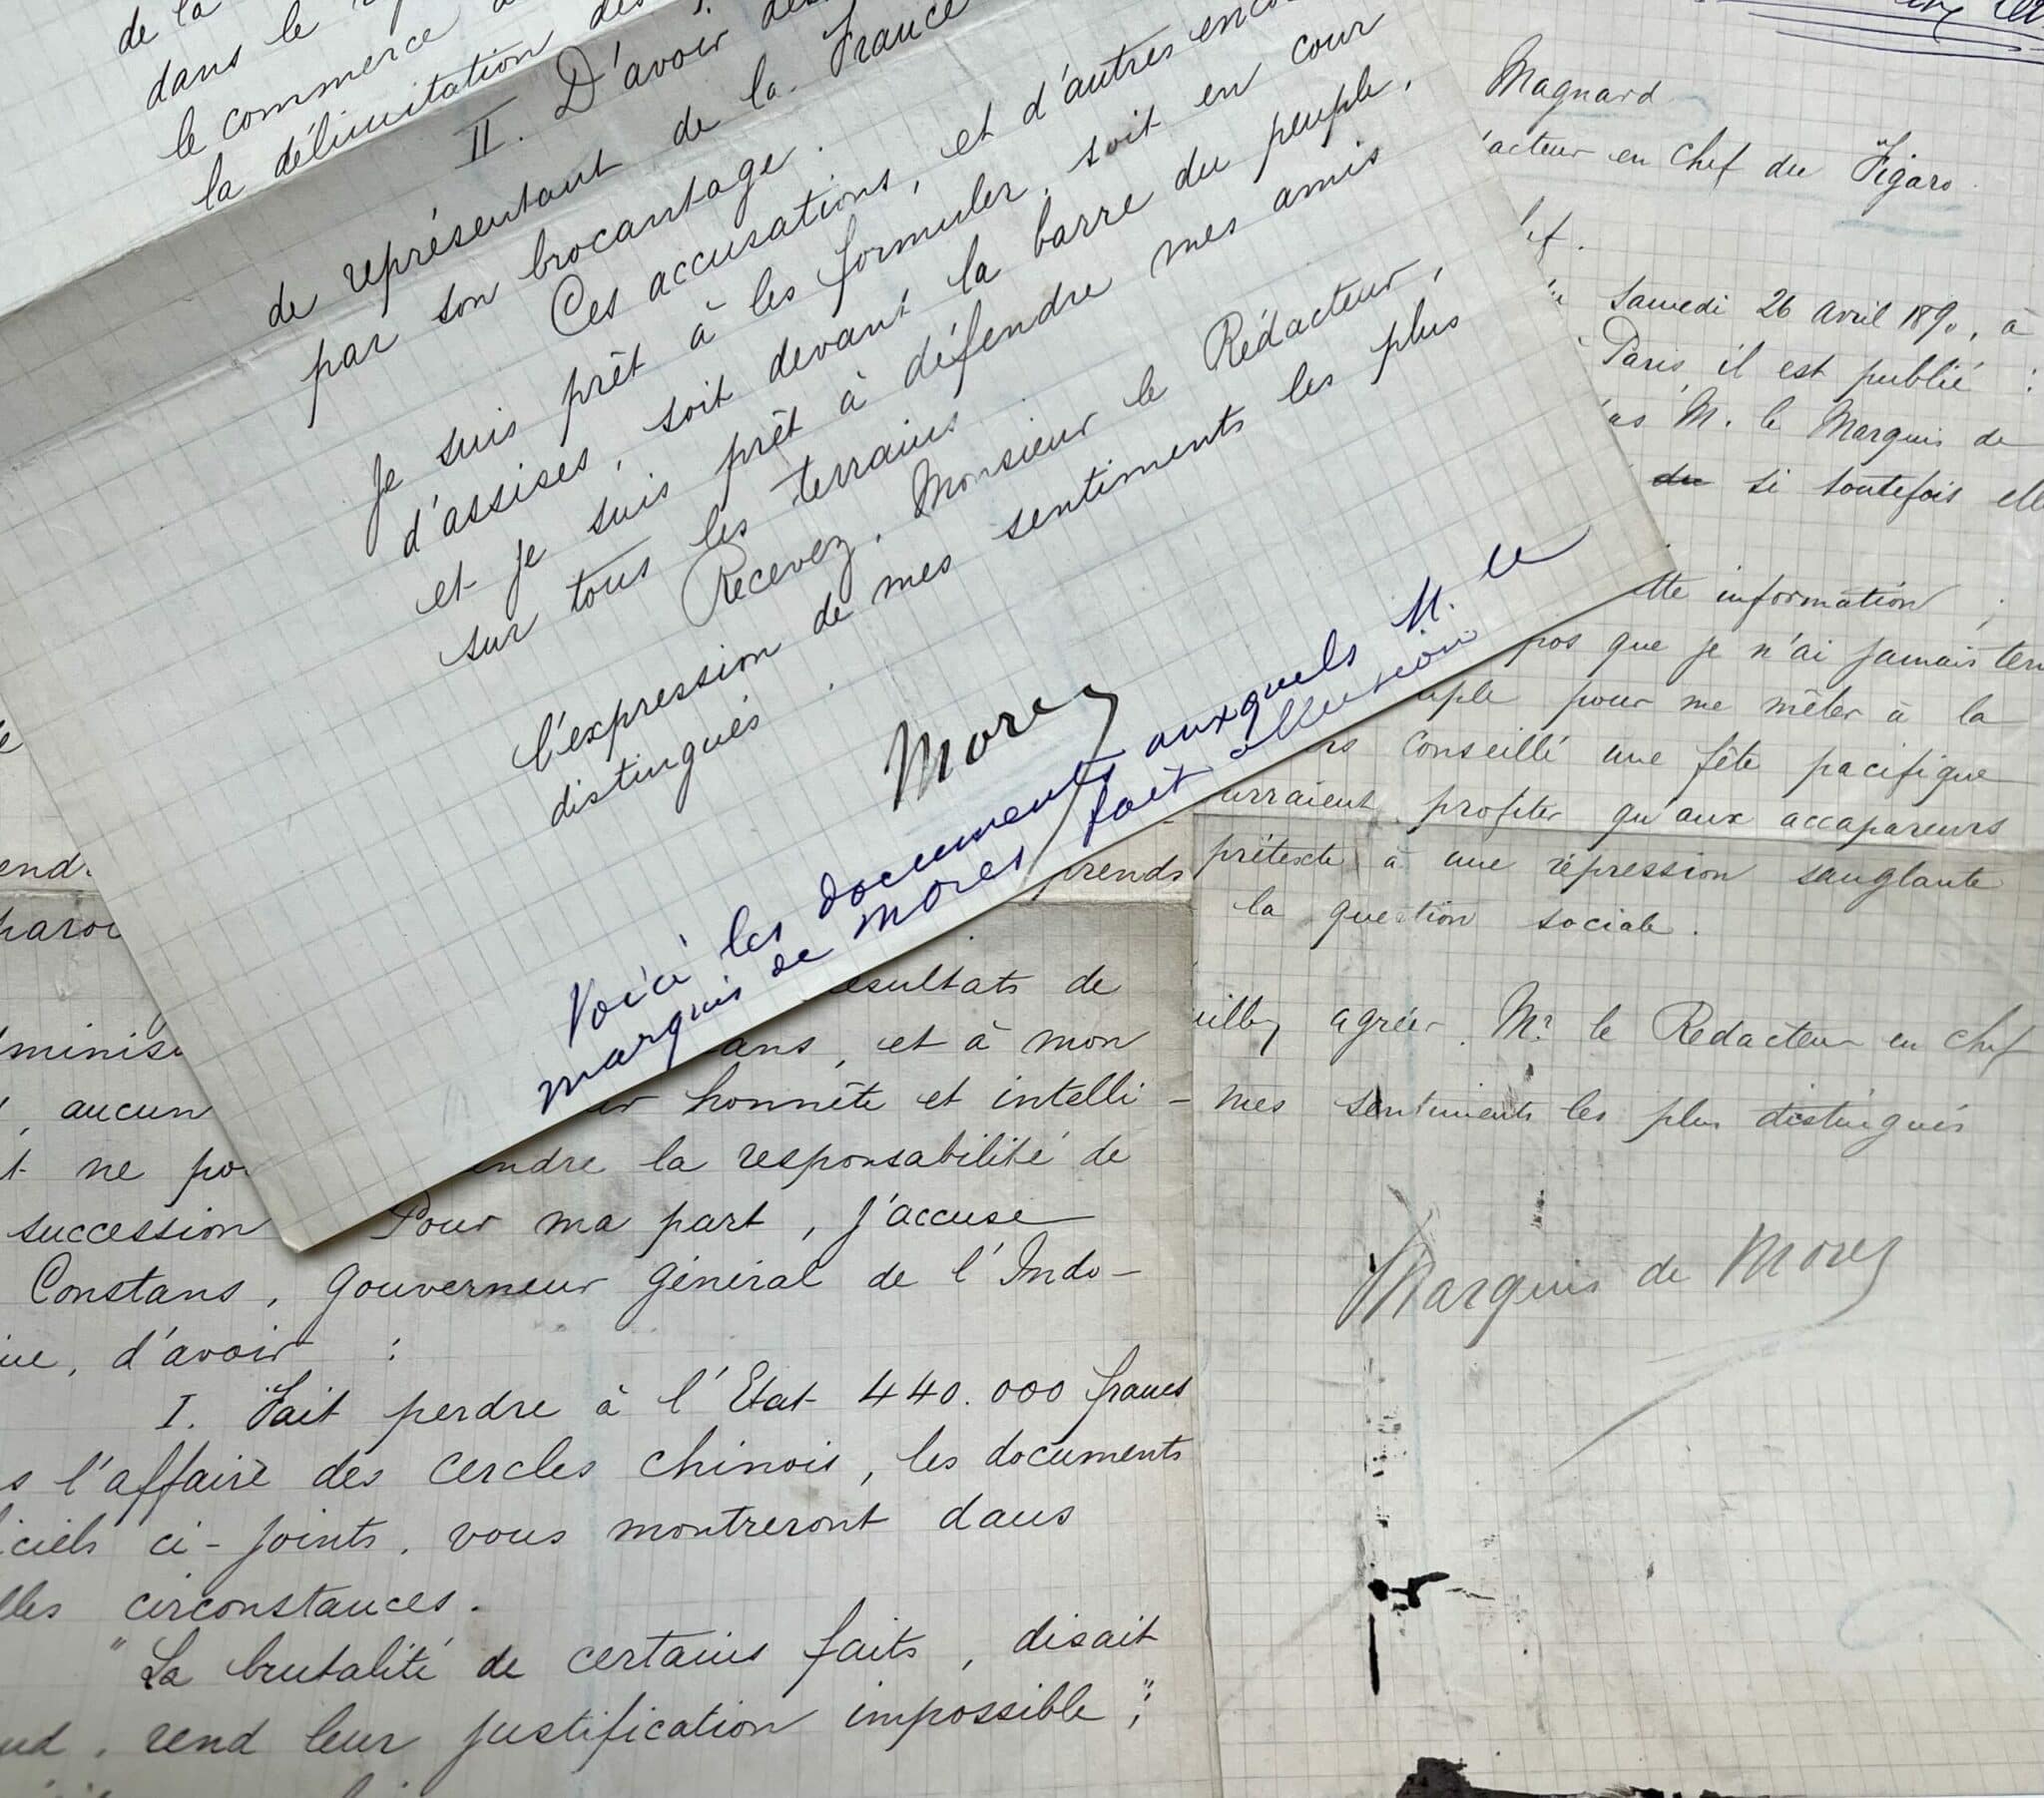 de la
dans le
le commerce
la délimitation des
II. D'avoir
de représentant de la France
par son brocantage.
Ces accusations, et d'autres encore
je suis prêt à les formuler, soit en cour
d'assises, soit devant la barre du peuple,
et je suis prêt à défendre mes amis
sur tous les terrains.
Recevez, Monsieur le Rédacteur,
l'expression de mes sentiments les plus
distingués.
Morès
Voici les documents auxquels M. le
marquis de Mores fait allusion
Magnard
acteur en chef du Figaro.
Samedi 26 avril 1890, à
Paris, il est publié :
M. le Marquis de
du si toutefois elle
tte information ;
pos que je n'ai jamais
uple pour me mêler à la
rs conseillé une fête pacifique
urraient profiter qu'aux accapareurs
prétexte à une répression sanglante
la question sociale.
agréer, Mr. le Rédacteur en chef
mes sentiments les plus distingués
Marquis de Mores
end
prends
paro
ésultats de
minis
ans, et à mon
, aucun
honnête et intelli-
ne po
endre la responsabilité de
succession
Pour ma part, j'accuse
Constans, Gouverneur Général de l'Indo-
ne, d'avoir :
I. Fait perdre à l'Etat 440.000 francs
s l'affaire des cercles chinois, les documents
iciels ci-joints, vous montreront dans
lles circonstances.
"La brutalité de certains faits, disait
ud, rend leur justification impossible";